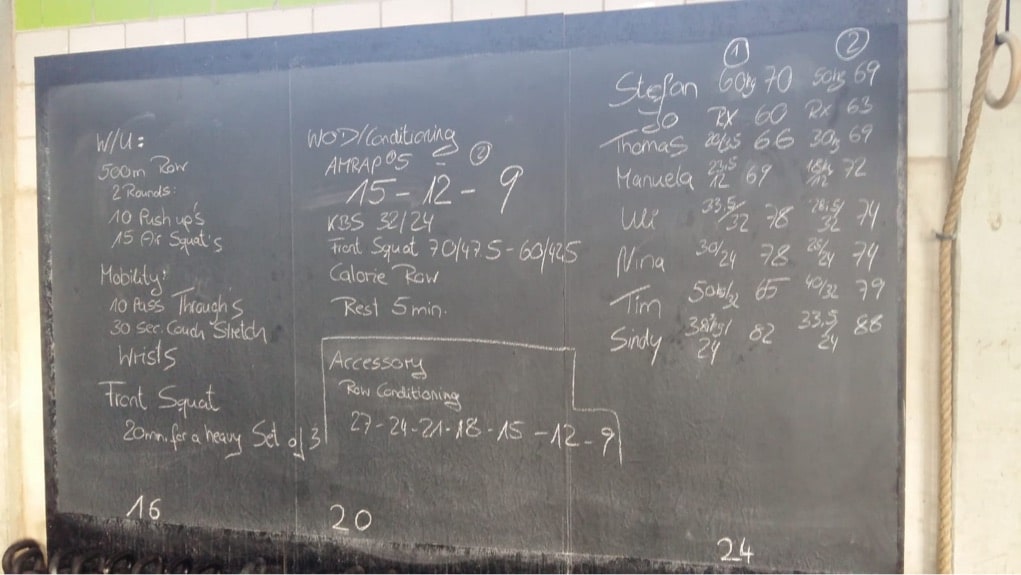 W/U:
500m Row
2 Rounds:
10 Push up's
15 Air Squat's
Mobility:
10 Pass Through's
30 Sec. Couch Stretch
Wrists
Front Squat
20min. for a heavy Set of 3
16
WOD/Conditioning
AMRAP 5 ②
15-12-9
KBS 32/24
Front Squat 70/47.5-60/42.5
Calorie Row
Rest 5 min.
Accessory
Row Conditioning
27-24-21-18-15-12-9
20
① ②
Stefan 60kg 70 50kg 69
Jo RX 60 RX 63
Thomas 66 30kg 69
Manuela 23,5/12 69 72
Uli 33,5/32 78 28,5/32 74
Nina 30/24 78 74
Tim 50kg/32 65 40/32 79
Sindy 24 82 33,5/24 88
24